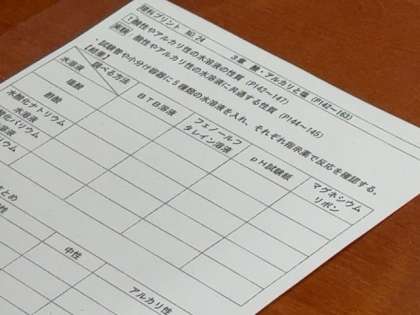 理科プリント No.24
3章 酸・アルカリと塩 (P142~163)
1 酸性やアルカリ性の水溶液の性質 (P142~147)
実験 酸性やアルカリ性の水溶液に共通する性質 (P144~145)
・試験管や小分け容器に5種類の水溶液を入れ、それぞれ指示薬で反応を確認する。
【結果】
調べる方法
水溶液
BTB溶液
フェノールフタレイン溶液
pH試験紙
マグネシウム
リボン
塩酸
酢酸
水酸化ナトリウム
水溶液
水酸化バリウム
水溶液
まとめ
中性
アルカリ性